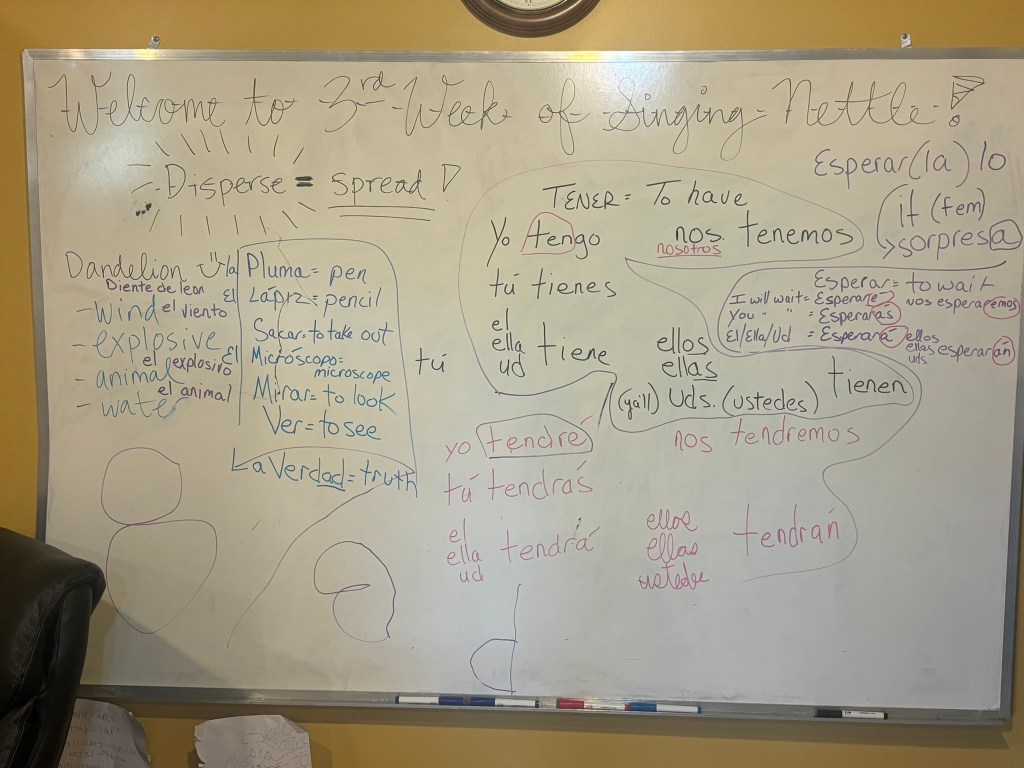 Welcome to 3rd Week of Singing Nettle!
Disperse = spread
Dandelion
Diente de leon
- wind el viento
- explosive
el explosivo
- animal
el animal
- water
la Pluma = pen
El Lápiz = pencil
Sacar = to take out
El Microscopo =
microscope
Mirar = to look
Ver = to see
La Verdad = truth
tú
TENER = To have
yo tengo
nos. tenemos
nosotros
tú tienes
el
ella
ud
tiene
ellos
ellas
(ya'll) Uds. (ustedes)
tienen
yo tendré
nos tendremos
tú tendrás
el
ella
ud
tendrá
ellos
ellas
ustede
tendrán
Esperar (la) lo
it (fem)
sorpresa
Esperar = to wait
I will wait = Esperaré
nos esperaremos
You " " = Esperarás
El/Ella/Ud = Esperará
ellos
ellas esperarán
uds